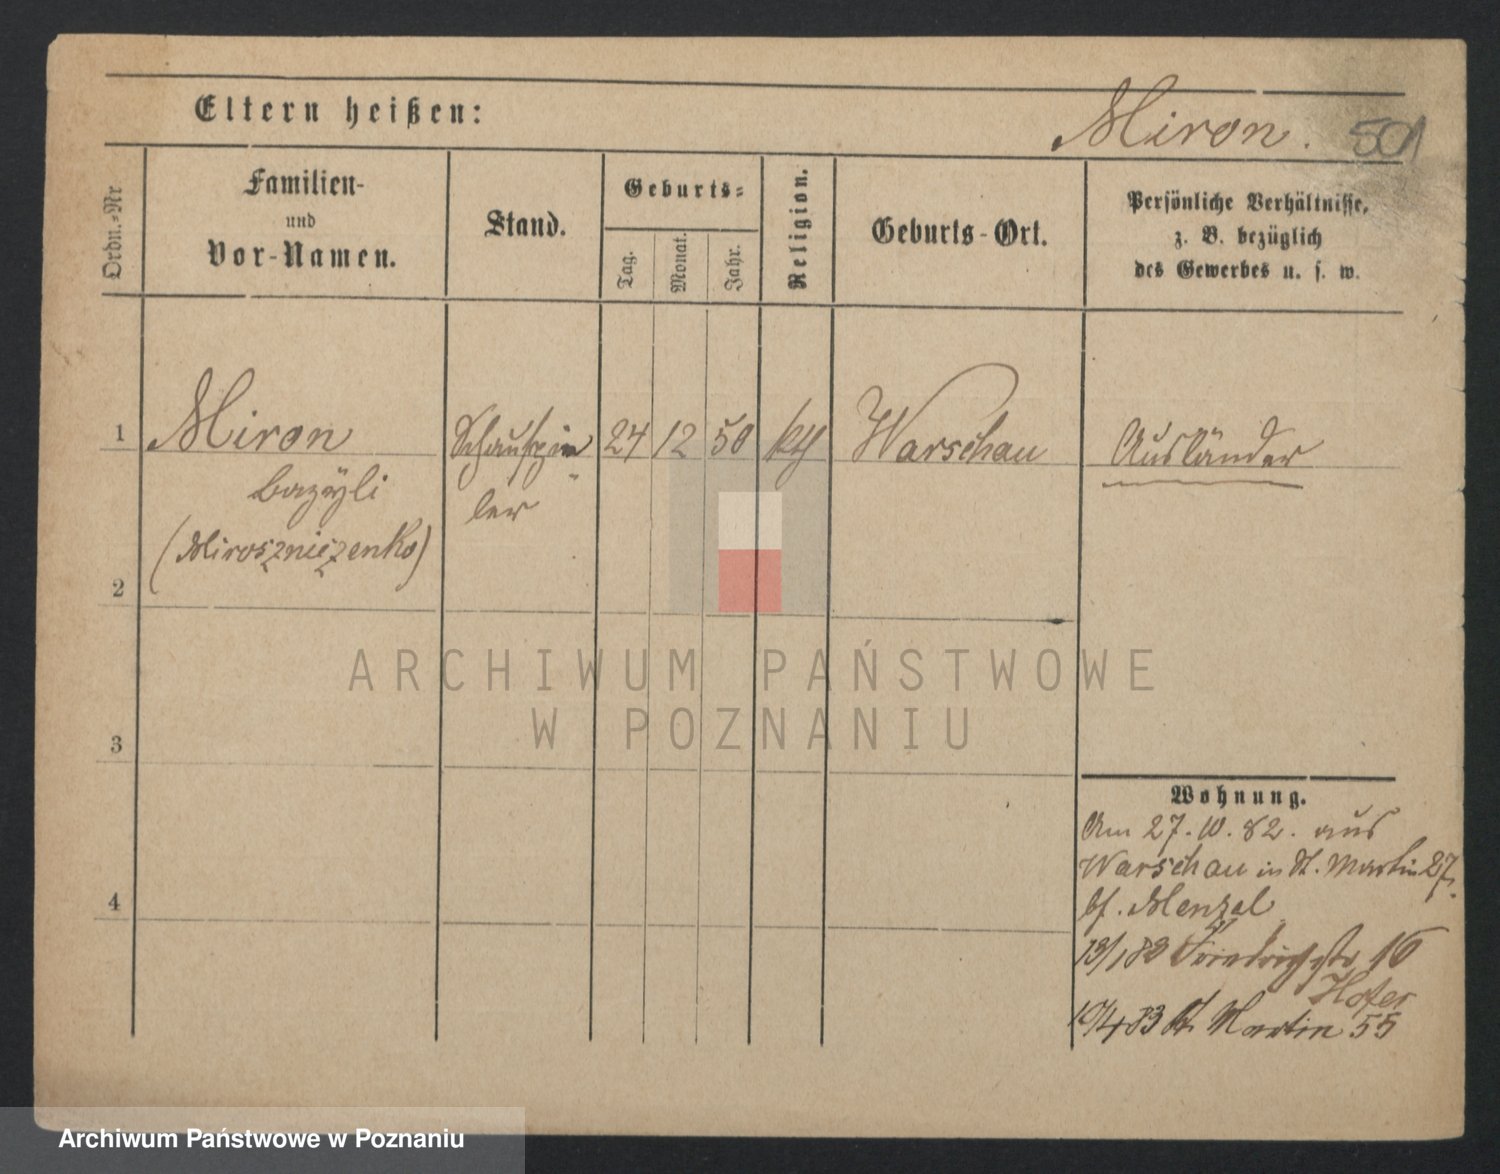 Eltern heißen:
Miron. 501
Ordn.-Nr
Familien-
und
Vor-Namen.
Stand.
Geburts-
Tag.
Monat.
Jahr.
Religion.
Geburts-Ort.
Persönliche Verhältnisse,
z. B. bezüglich
des Gewerbes u. s. w.
1 Miron Schauspie- 24 12 50 kth Warschau Ausländer
bazÿli ler
(Miroszniczenko)
2
3
4
Wohnung.
Am 27.10.82. aus
Warschau in St. Martin 27.
bf. Menzel
13/1 83 Friedrichstr 16
Hofer
10/4 83 St. Martin 55
ARCHIWUM PAŃSTWOWE
W POZNANIU
Archiwum Państwowe w Poznaniu